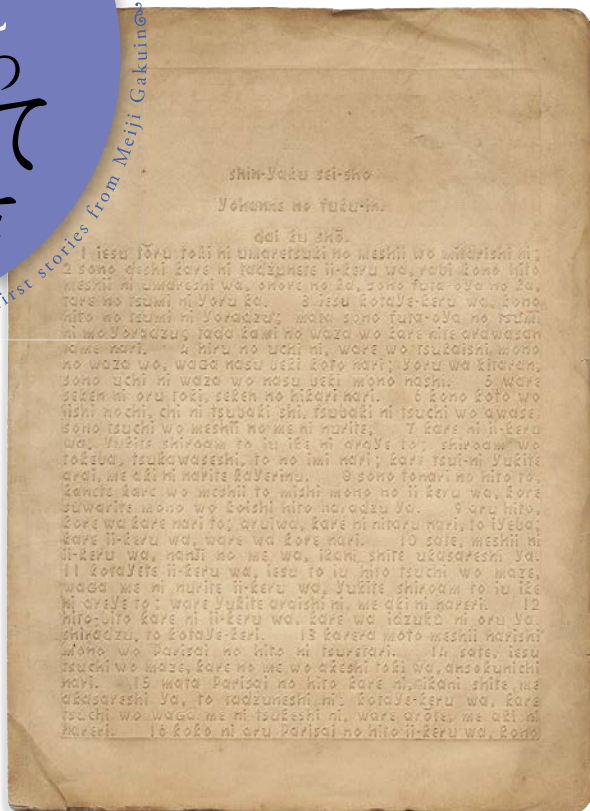 って
First stories from Meiji Gakuin
shin-yaku sei-sho
Yohanne no fuku-in.
dai ku shō.
1 iesu tōru toki ni umaretsuki no meshii wo mitarishi ni;
2 sono deshi kare ni tadzunete ii-keru wa, rabi kono hito
meshii ni umareshi wa, onore no ka, sono futa-oya no ka,
tare no tsumi ni yoru ka. 3 iesu kotaye-keru wa, kono
hito no tsumi ni yoradzu; mata sono futa-oya no tsumi
ni mo yoradzu; tada kami no waza wo kare nite arawasan
tame nari. 4 hiru no uchi ni, ware wo tsukaishi mono
no waza wo, waga nasu beki koto nari; yoru wa kitaran,
sono uchi ni waza wo nasu beki mono nashi. 5 ware
seken ni oru toki, seken no hikari nari. 6 kono koto wo
iishi nochi, chi ni tsubaki shi, tsubaki ni tsuchi wo awase
sono tsuchi wo meshii no me ni nurite, 7 kare ni ii-keru
wa, yukite shiroam to iu ike ni araye to; shiroam wo
tokeba, tsukawaseshi, to no imi nari; kare tsui-ni yukite
arai, me aki ni narite kayerinu. 8 sono tonari no hito to,
kanete kare wo meshii to mishi mono no ii keru wa, kore
suwarite mono wo koishi hito naradzu ya. 9 aru hito,
kore wa kare nari to; aruiwa, kare ni nitaru nari, to iyeba;
kare ii-keru wa, ware wa kore nari. 10 sate, meshii ni
ii-keru wa, nanji no me wa, ikani shite akasareshi ya.
11 kotayete ii-keru wa, iesu to iu hito tsuchi wo maze,
waga me ni nurite ii-keru wa, yukite shiroam to iu ike
ni araye to; ware yukite araishi ni, me aki ni nareri. 12
hito-bito kare ni ii-keru wa, kare wa idzuku ni oru ya.
shiradzu, to kotaye-keri. 13 karera moto meshii narishi
mono wo Parisai no hito ni tsuretari. 14 sate, iesu
tsuchi wo maze, kare no me wo akeshi toki wa, ansokunichi
nari. 15 mata Parisai no hito kare ni, ikani shite me
akasareshi ya, to tadzuneshi ni; kotaye-keru wa, kare
tsuchi wo waga me ni tsukeshi ni, ware arōte, me aki ni
nareri. 16 koko ni aru Parisai no hito ii-keru wa, kono